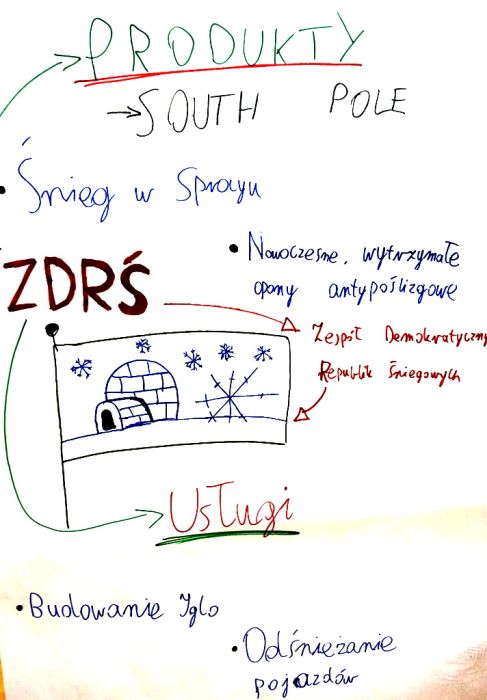 PRODUKTY
→ SOUTH POLE
• Śnieg w Sprayu
• Nowoczesne, wytrzymałe
opony antypoślizgowe
ZDRŚ
Zespół Demokratyczny
Republik Śniegowych
Usługi
• Budowanie Iglo
• Odśnieżanie
pojazdów